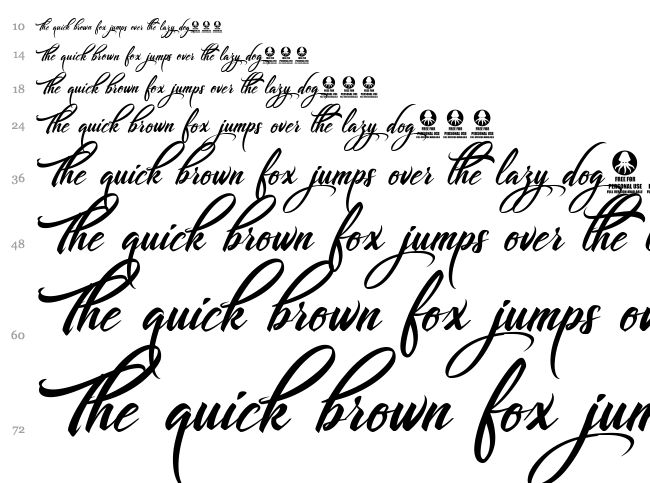 10 the quick brown fox jumps over the lazy dog
14 the quick brown fox jumps over the lazy dog
18 the quick brown fox jumps over the lazy dog
24 the quick brown fox jumps over the lazy dog FREE FOR PERSONAL USE FREE FOR PERSONAL USE FREE FOR PERSONAL USE
36 the quick brown fox jumps over the lazy dog FREE FOR PERSONAL USE FULL VERSION AVAILABLE
48 the quick brown fox jumps over the
60 the quick brown fox jumps ov
72 the quick brown fox jum